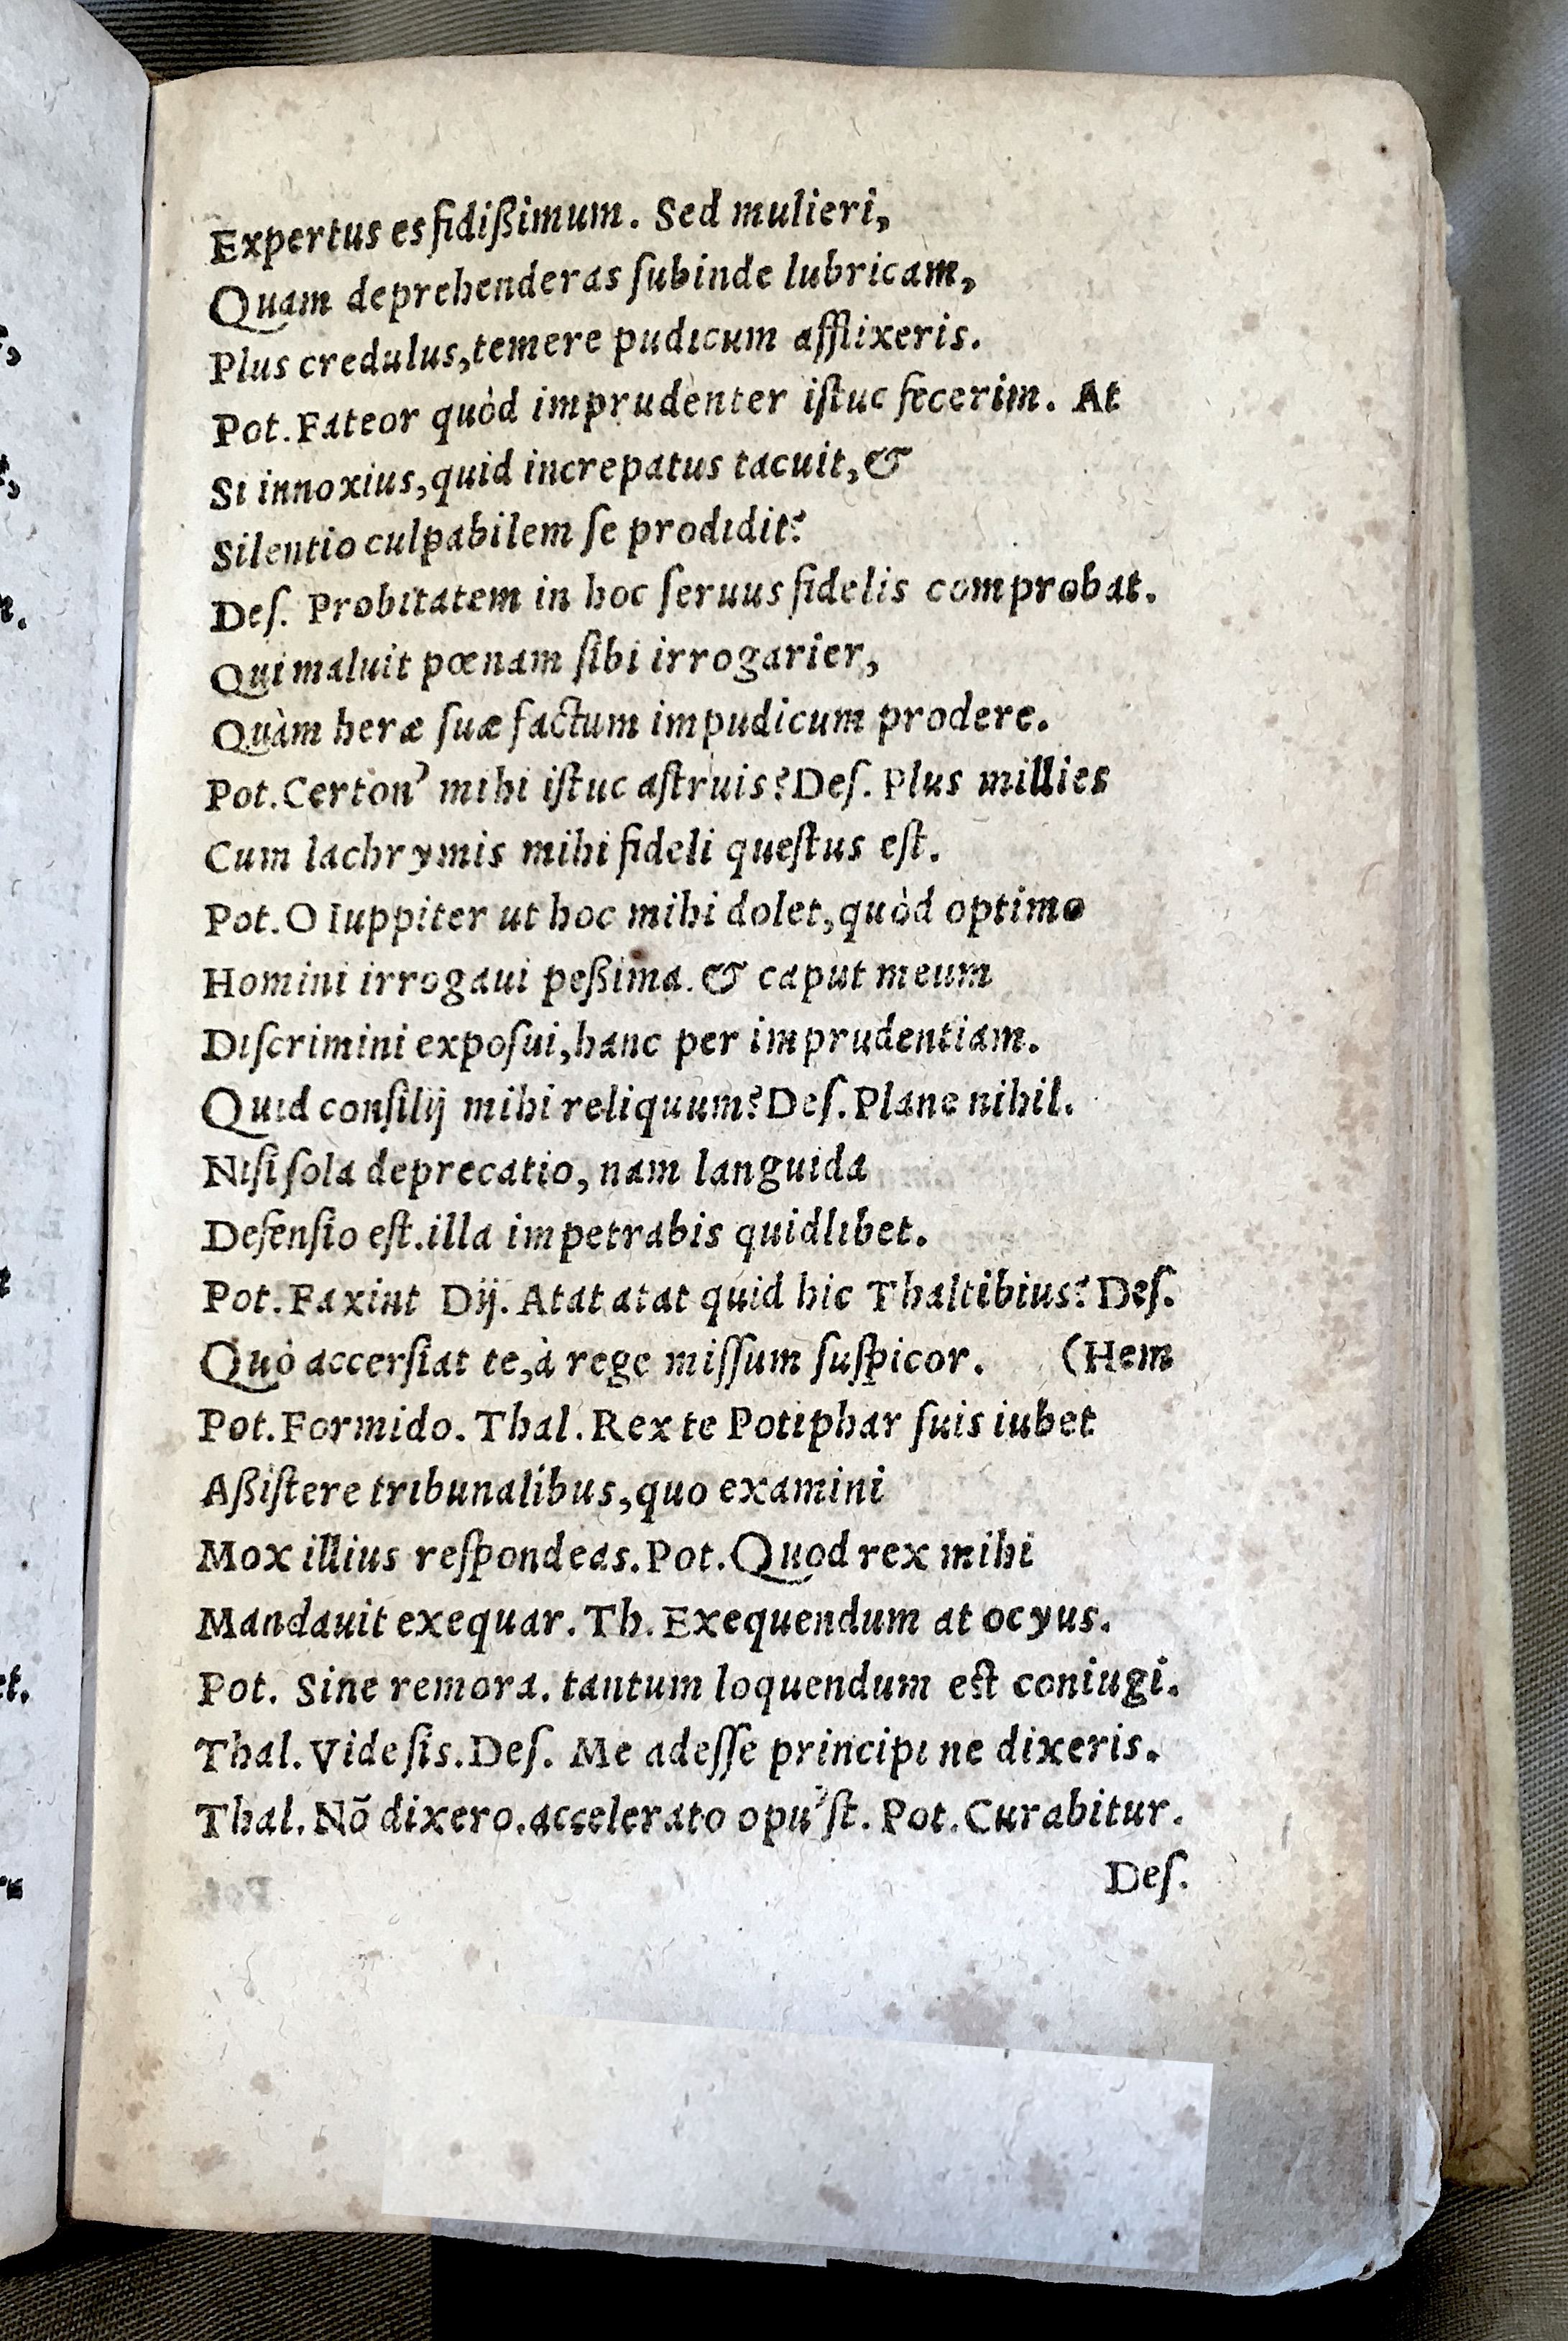 Expertus es fidißimum. Sed mulieri,
Quam deprehenderas ſubinde lubricam,
Plus credulus,temere pudicum afflixeris.
Pot.Fateor quòd imprudenter iſtuc fecerim. At
Si innoxius,quid increpatus tacuit,&
Silentio culpabilem ſe prodidit?
Deſ. Probitatem in hoc ſeruus fidelis comprobat.
Qui maluit pœnam ſibi irrogarier,
Quàm heræ ſuæ factum impudicum prodere.
Pot.Certon' mihi iſtuc aſtruis?Deſ. Plus millies
Cum lachrymis mihi fideli queſtus eſt.
Pot.O Iuppiter ut hoc mihi dolet,quòd optimo
Homini irrogaui peßima.& caput meum
Diſcrimini expoſui,hanc per imprudentiam.
Quid conſilij mihi reliquum?Deſ.Plane nihil.
Niſi ſola deprecatio, nam languida
Defenſio eſt.illa impetrabis quidlibet.
Pot.Faxint Dij. Atat atat quid hic Thaltibius? Deſ.
Quò accerſiat te,à rege miſſum ſuſpicor. (Hem
Pot.Formido. Thal.Rex te Potiphar ſuis iubet
Aßiſtere tribunalibus,quo examini
Mox illius reſpondeas.Pot.Quod rex mihi
Mandauit exequar. Th.Exequendum at ocyus.
Pot. Sine remora. tantum loquendum eſt coniugi.
Thal.Vide ſis.Deſ. Me adeſſe principi ne dixeris.
Thal.Nõ dixero.accelerato opu'ſt. Pot.Curabitur.
Deſ.